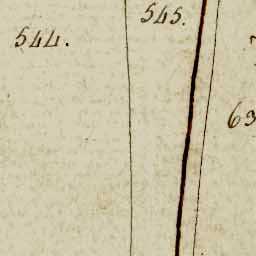 545.
544.
63